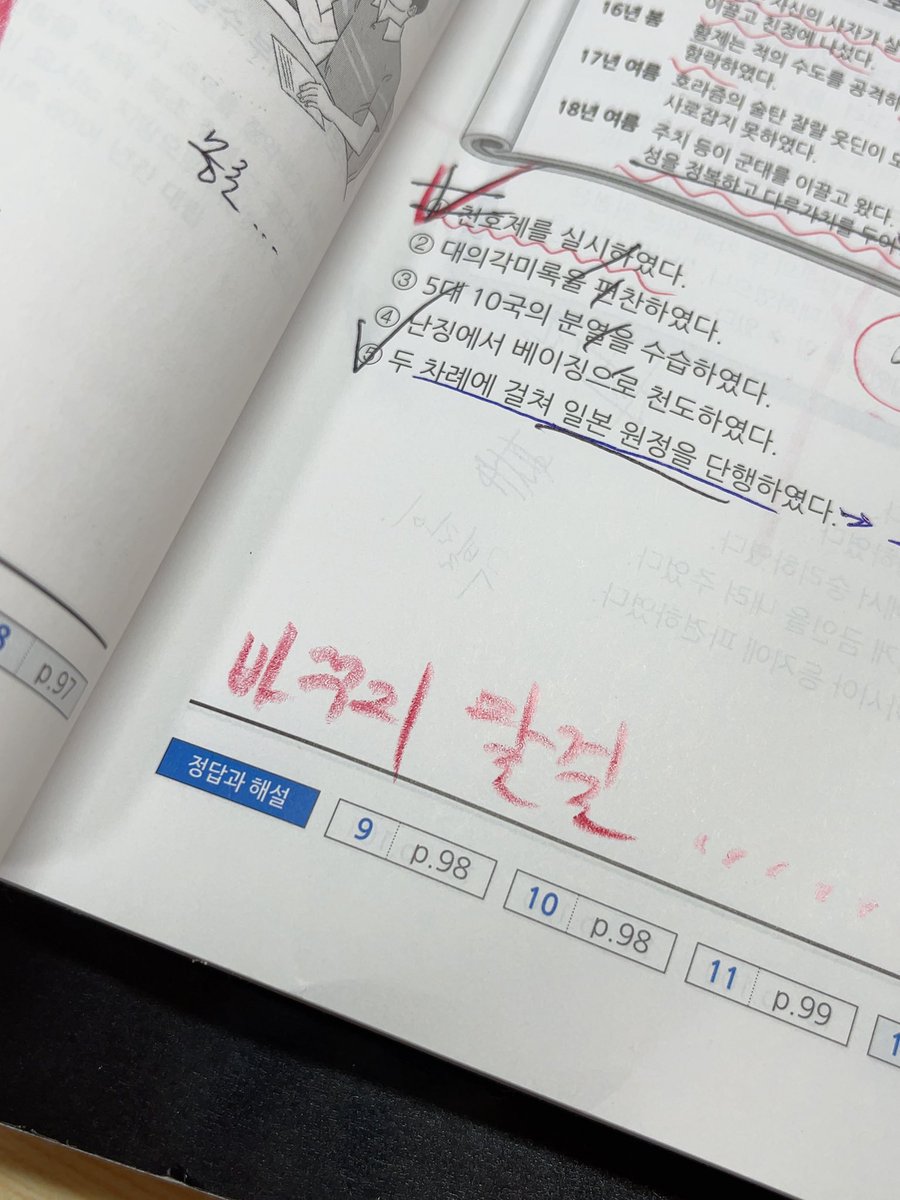 봉골...
16년 봄
사신의 사자가 살
이끌고 친정에 나섰다.
17년 여름
황제는 적의 수도를 공격하
함락하였다.
18년 여름
호라즘의 술탄 잘랄 웃딘이 도
사로잡지 못하였다.
주치 등이 군대를 이끌고 왔다.
성을 정복하고 다루가치를 두어
① 천호제를 실시하였다.
② 대의각미록을 편찬하였다.
③ 5대 10국의 분열을 수습하였다.
④ 난징에서 베이징으로 천도하였다.
⑤ 두 차례에 걸쳐 일본 원정을 단행하였다.
바꾸지 말걸
8 p.97
정답과 해설
9 p.98
10 p.98
11 p.99